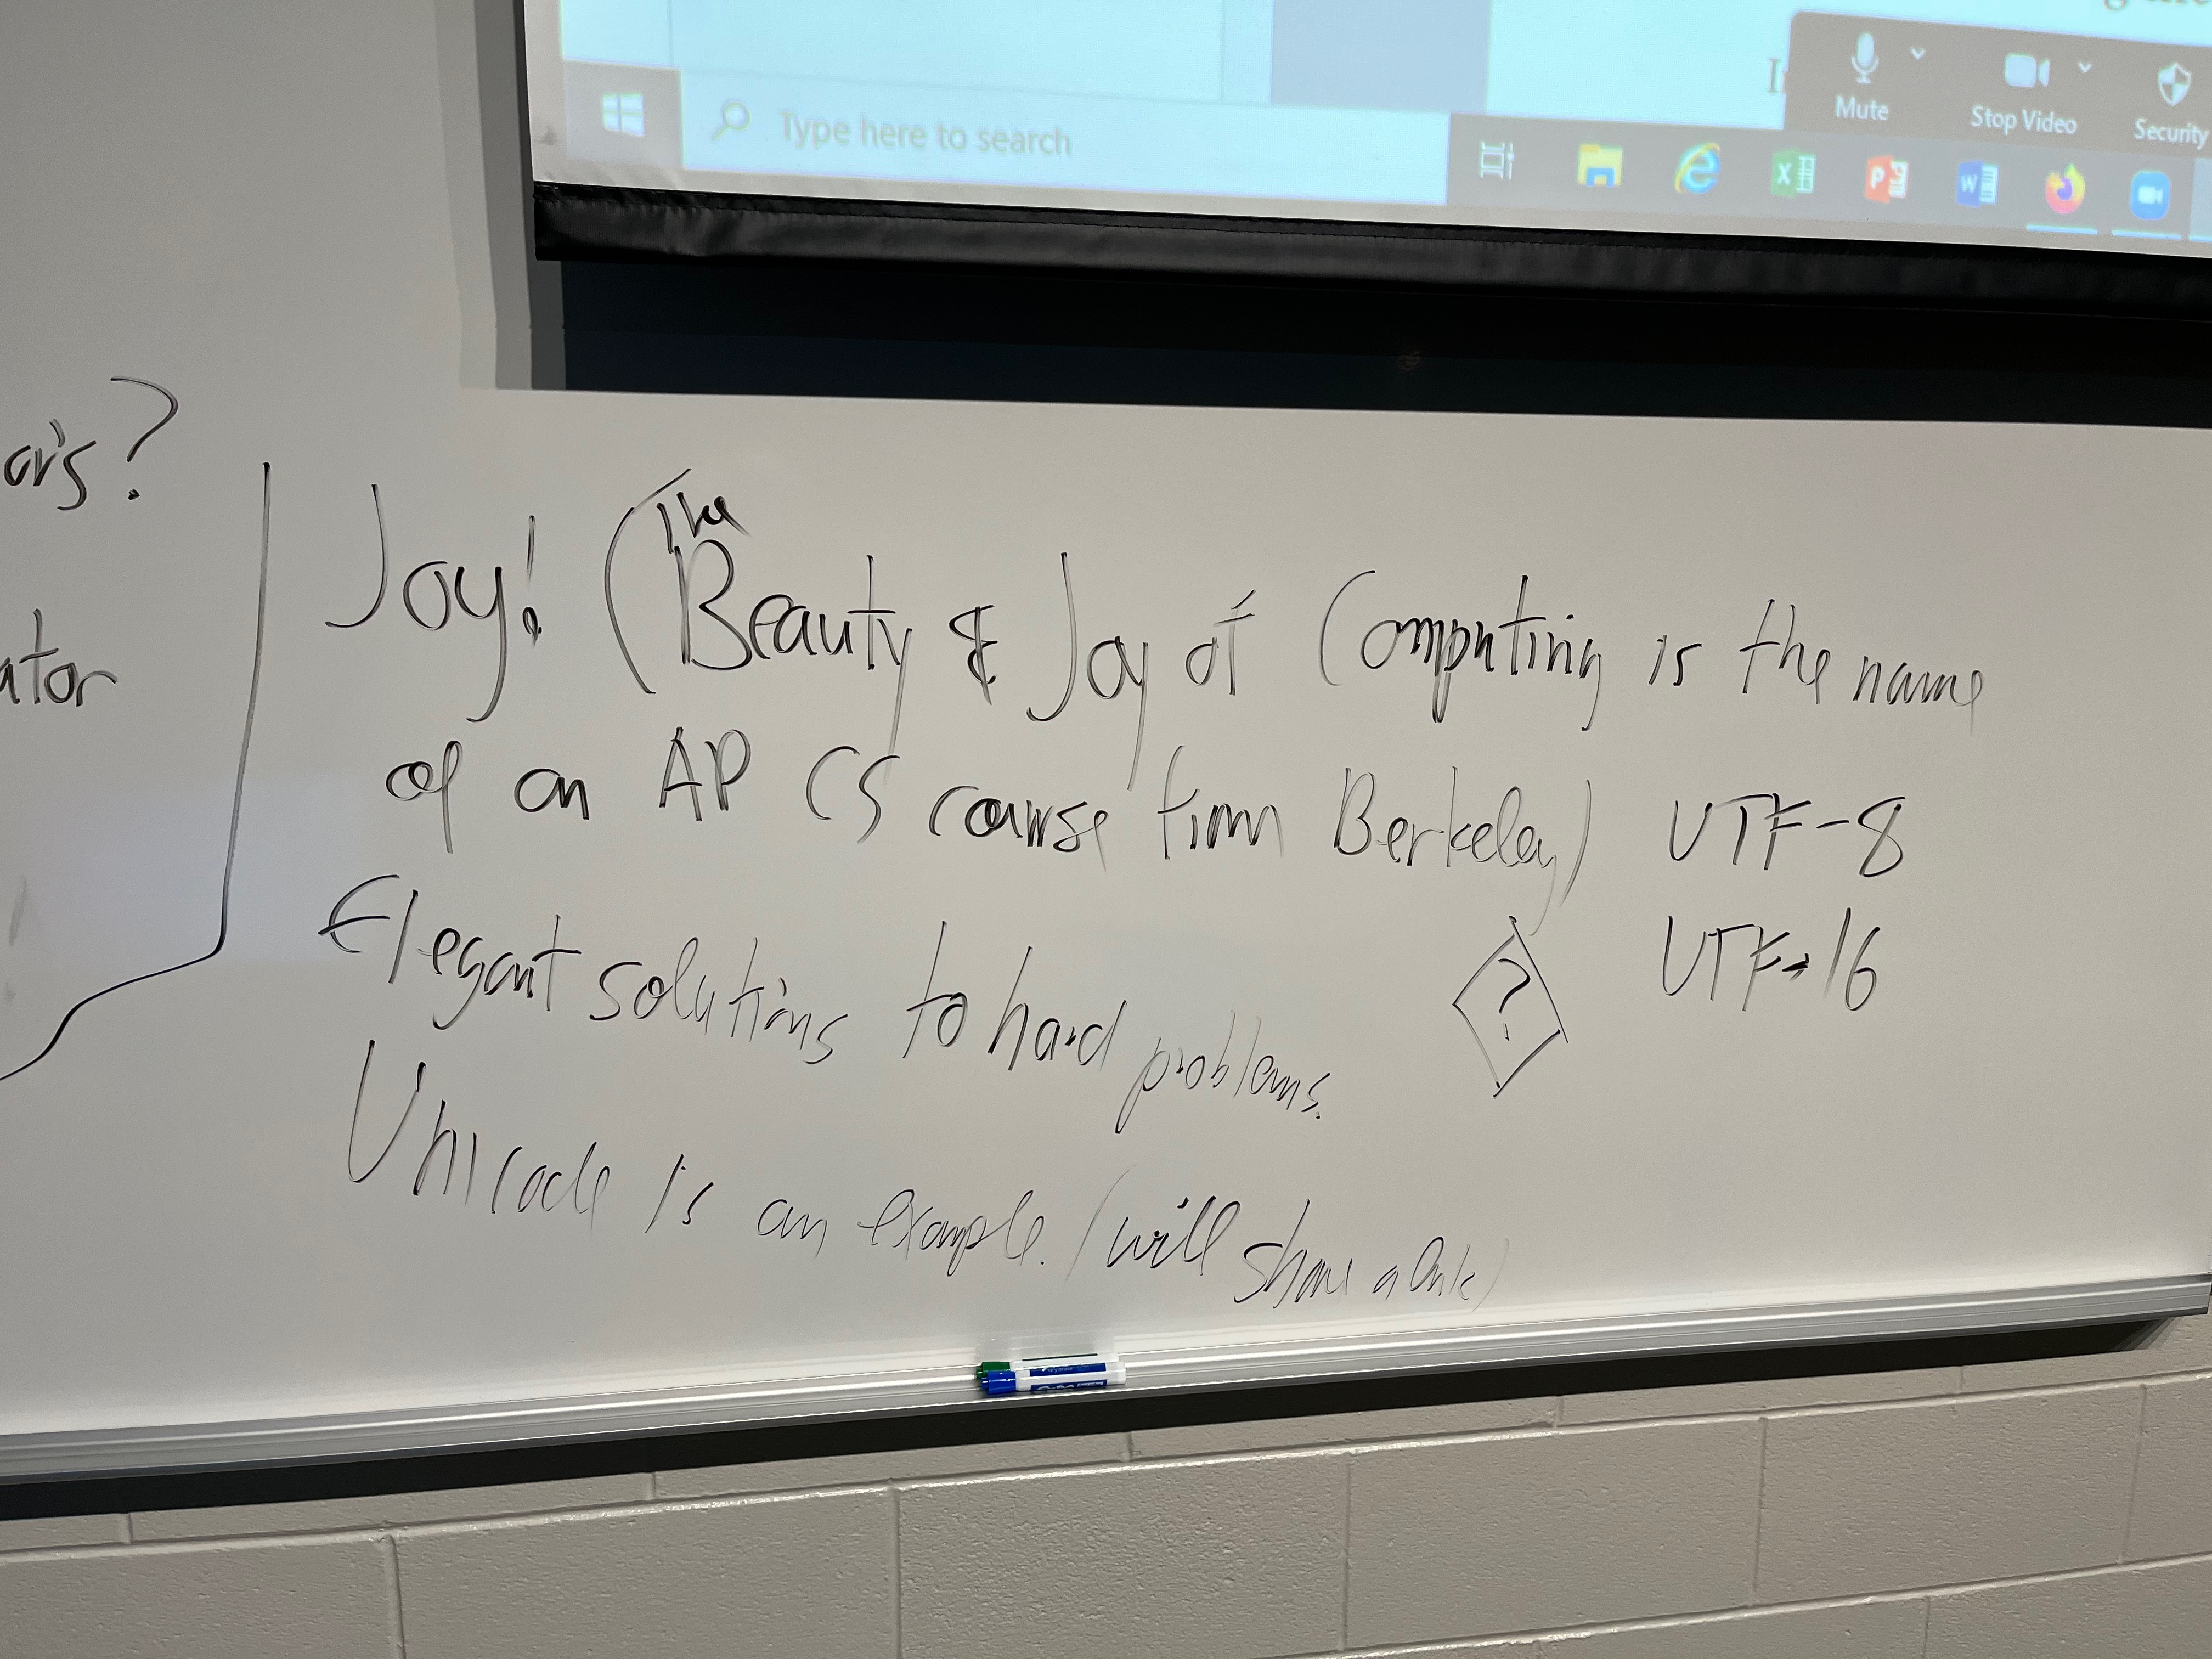 Type here to search
Mute
Stop Video
Security
Joy! (The Beauty & Joy of Computing is the name
of an AP CS course from Berkeley)
UTF-8
UTF-16
?
Elegant solutions to hard problems.
Unicode is an example. (will share a link)